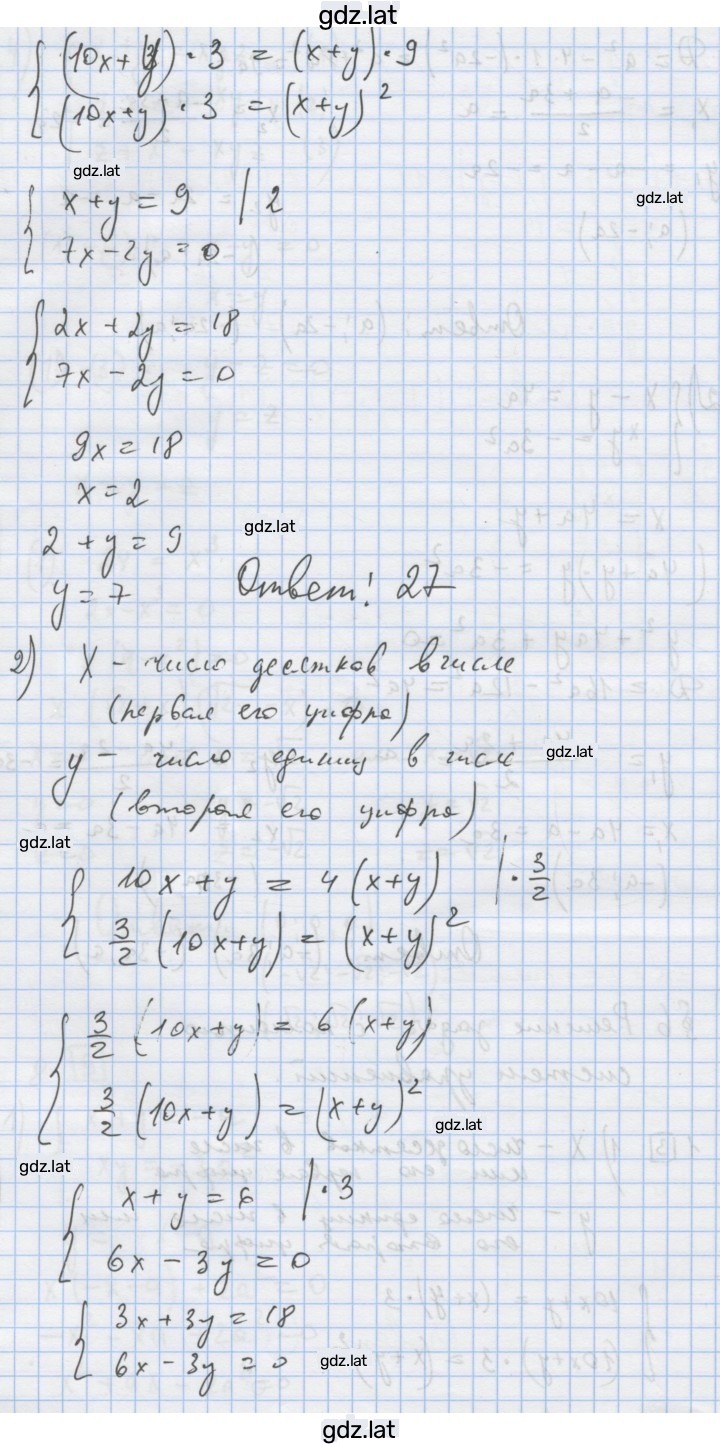 gdz.lat
(10x + y) · 3 = (x+y) · 9
(10x+y) · 3 = (x+y)²
gdz.lat
gdz.lat
x + y = 9 | 2
7x - 2y = 0
2x + 2y = 18
7x - 2y = 0
9x = 18
x = 2
2 + y = 9
gdz.lat
y = 7 Ответ! 27
2) X - число десятков в числе
(первая его цифра)
y - число единиц в числе
gdz.lat
(вторая его цифра)
gdz.lat
10x + y = 4 (x+y) | · 3/2
3/2 (10x+y) = (x+y)²
3/2 (10x+y) = 6 (x+y)
3/2 (10x+y) = (x+y)²
gdz.lat
gdz.lat
x + y = 6 | · 3
6x - 3y = 0
3x + 3y = 18
6x - 3y = 0
gdz.lat
gdz.lat